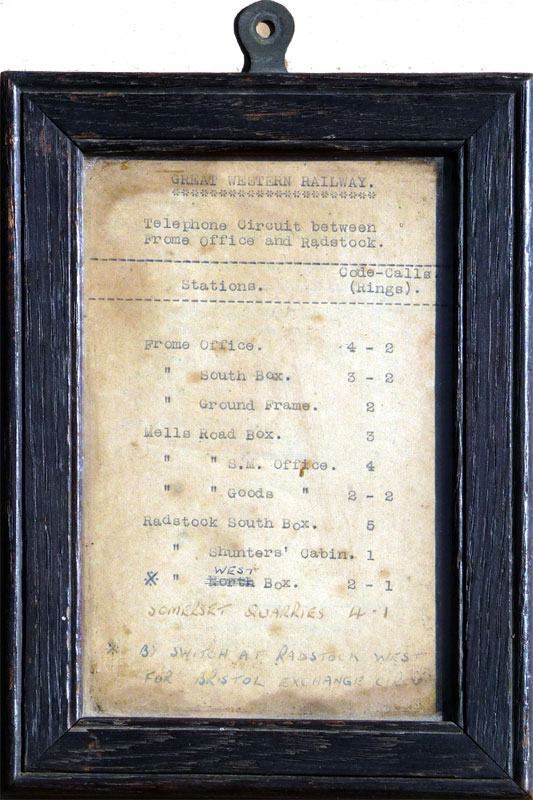 GREAT WESTERN RAILWAY.
***********************
Telephone Circuit between
Frome Office and Radstock.
Stations. Code-Calls (Rings).
Frome Office. 4 - 2
" South Box. 3 - 2
" Ground Frame. 2
Mells Road Box. 3
" " S.M. Office. 4
" " Goods " 2 - 2
Radstock South Box. 5
" Shunters' Cabin. 1
WEST
* " North Box. 2 - 1
SOMERSET QUARRIES 4 - 1
* BY SWITCH AT RADSTOCK WEST
FOR BRISTOL EXCHANGE